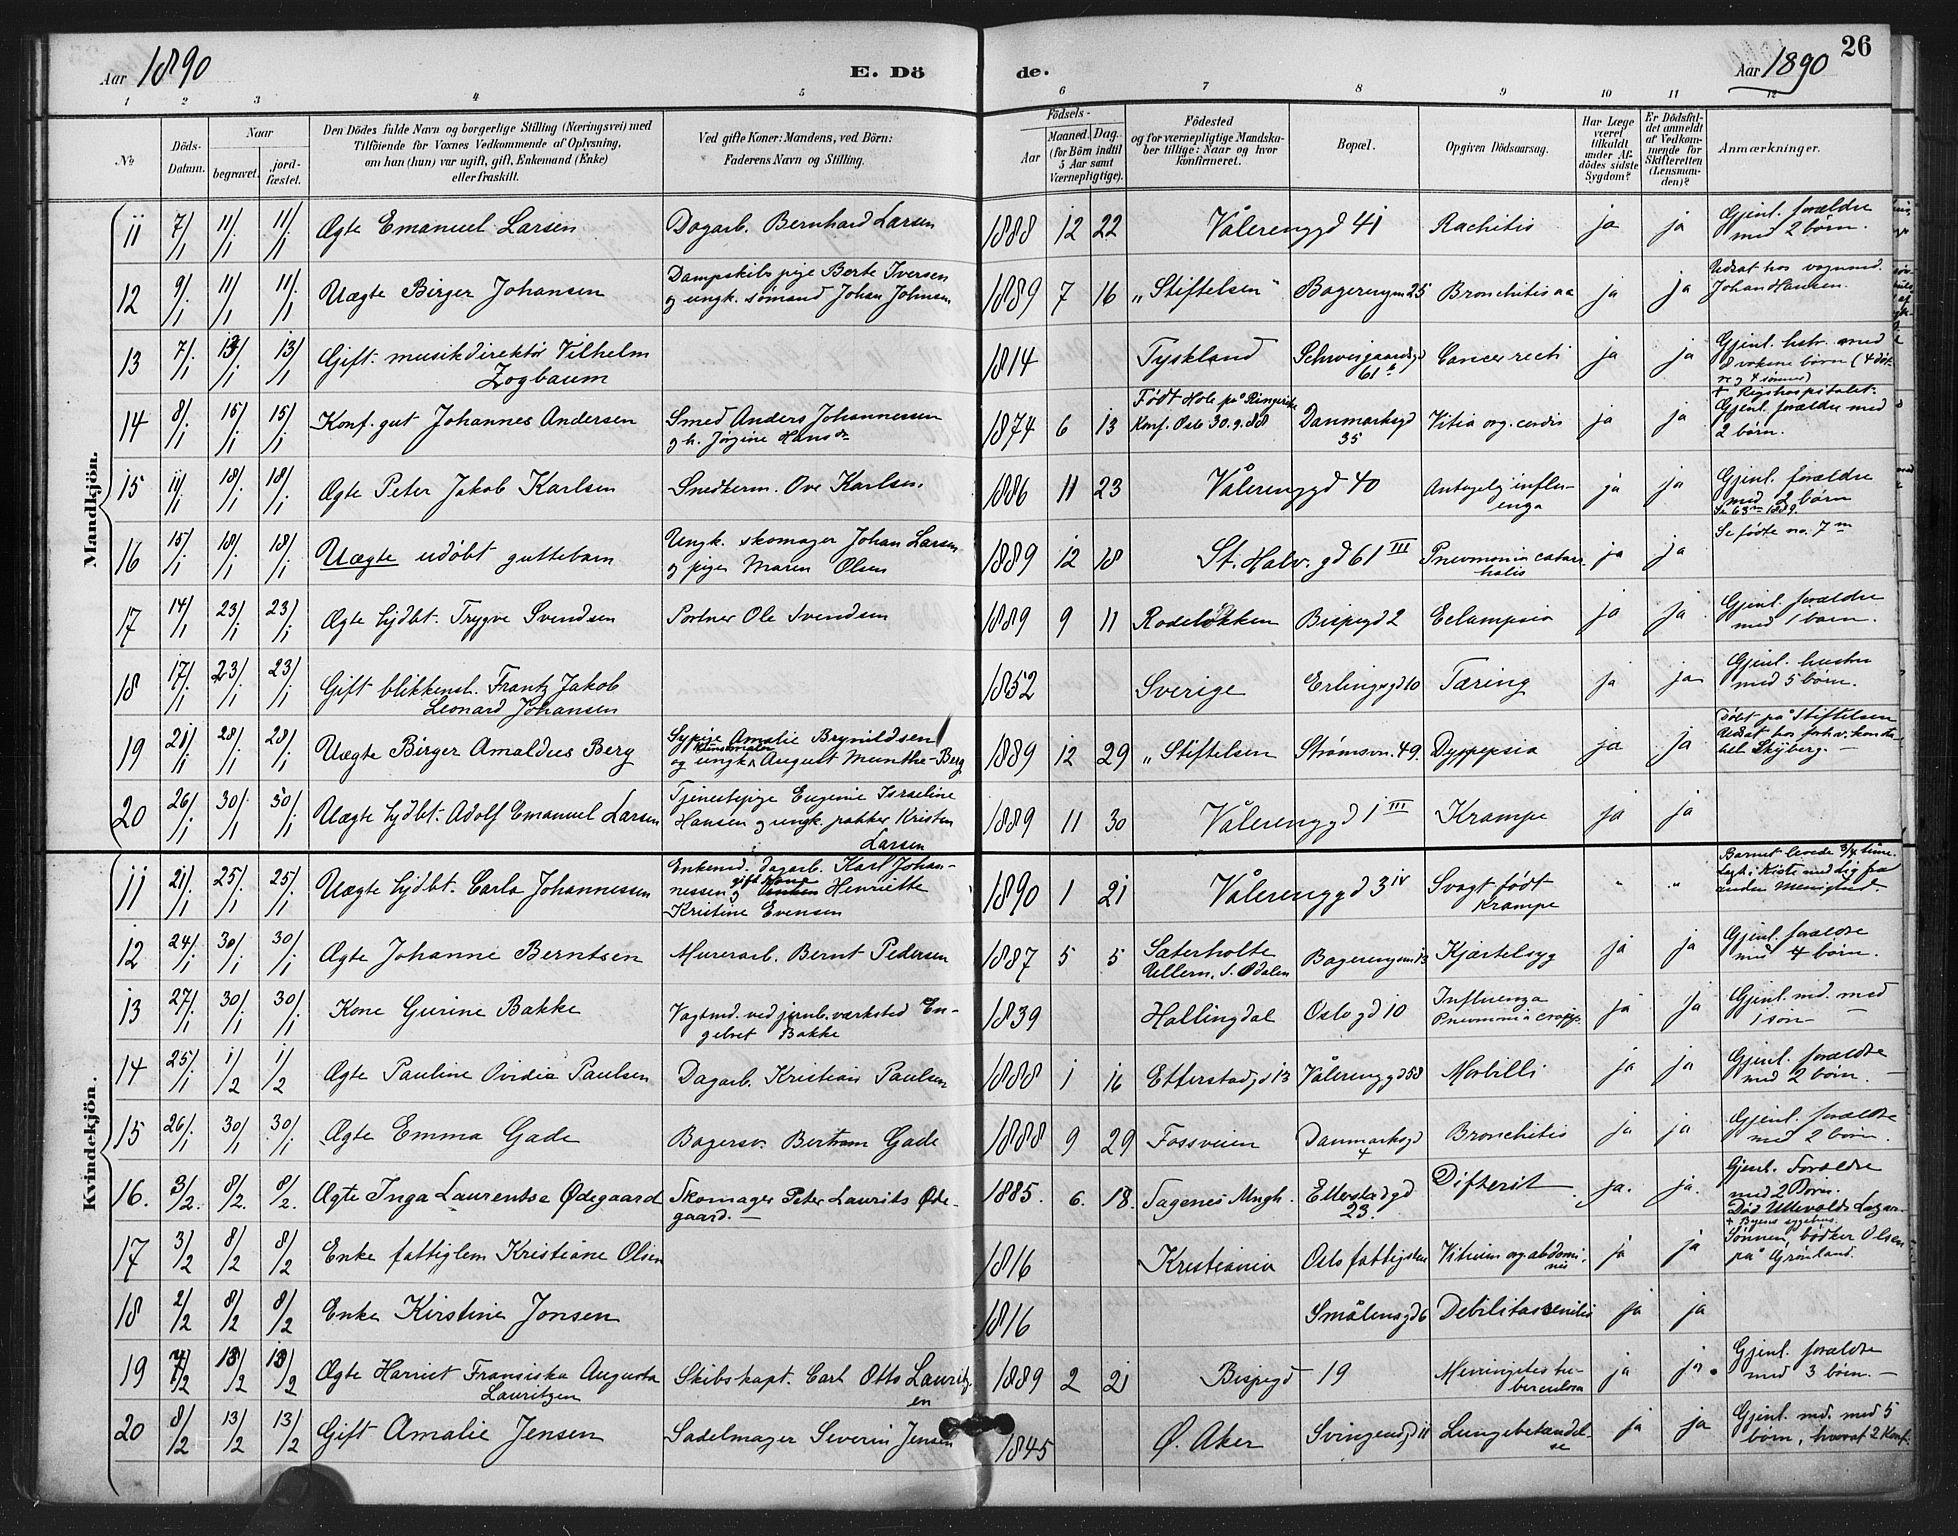 26
Aar 1890
E. Döde.
Aar 1890
1 2 3 4 5 6 7 8 9 10 11 12
No
Döds-Datum.
Naar begravet. jordfæstet.
Den Dödes fulde Navn og borgerlige Stilling (Næringsvei) med Tilföiende for Voxnes Vedkommende af Oplysning, om han (hun) var ugift, gift, Enkemand (Enke) eller fraskilt.
Ved gifte Koner: Mandens, ved Börn: Faderens Navn og Stilling.
Födsels-
Aar Maaned. Dag. (for Börn indtil 5 Aar samt Værnepligtige).
Födested og for værnepligtige Mandskaber tillige: Naar og hvor konfirmeret.
Bopæl.
Opgiven Dödsaarsag.
Har Læge været tilkaldt under Afdödes sidste Sygdom?
Er Dödsfaldet anmeldt af Vedkommende for Skifteretten (Lensmanden)?
Anmærkninger.
Mandkjön.
11 7/1 11/1 11/1 Ægte Emanuel Larsen Dagarb. Bernhard Larsen 1888 12 22 Vålerenggd 41 Rachitis ja ja Gjenl. forældre med 2 børn.
12 9/1 11/1 11/1 Uægte Birger Johansen Dampskibspige Berte Iversen og ungk. sømand Johan Johnsen 1889 7 16 "Stiftelsen" Bagerengvn 25 Bronchitis ja ja Udsat hos vognmd. Johan Hansen.
13 7/1 13/1 13/1 Gift. musikdirektør Vilhelm Zogbaum 1814 Tyskland Schweigaardsgd 61 b Cancer recti ja ja Gjenl. hstr. med 8 voksne børn (4 døtre og 4 sønner)
14 8/1 15/1 15/1 Konf. gut Johannes Andersen Smed Anders Johannessen og h. Jørgine Hansdr 1874 6 13 Født Hole på Ringerike Konf. Oslo 30.9.88 Danmarksgd 35 Vitia org. cordis ja ja + Rigshospitalet. Gjenl. forældre med 2 børn.
15 11/1 18/1 18/1 Ægte Peter Jakob Karlsen Snedkerm. Ove Karlsen. 1886 11 23 Vålerenggd 40 Antagelig influenza ja ja Gjenl. forældre med 2 børn Se 63 1889.
16 15/1 18/1 18/1 Uægte udøbt guttebarn Ungk. skomager Johan Larsen og pigen Maren Olsen 1889 12 18 St. Halv. gd 61 III Pneumonia catarrhalis ja ja Se fødte no. 7 m
17 14/1 23/1 23/1 Ægte hjdbt. Trygve Svendsen Portner Ole Svendsen 1889 9 11 Rodeløkken Bispegd 2 Eclampsia ja ja Gjenl. forældre med 1 barn.
18 17/1 23/1 23/1 Gift blikkensl. Frantz Jakob Leonard Johansen 1852 Sverige Erlingsgd 10 Tæring ja ja Gjenl. hustru med 5 børn.
19 21/1 28/1 28/1 Uægte Birger Amaldus Berg Sypige Amalie Brynildsen og ungk. kunstmaler August Munthe-Berg 1889 12 29 "Stiftelsen Strømsvn. 49. Dyppepsia ja ja Døbt på Stiftelsen Udsat hos forhv. konstabel Skyberg.
20 26/1 30/1 30/1 Uægte hjdbt. Adolf Emanuel Larsen Tjenestepige Eugenie Israeline Hansen og ungk. pakker Kristen Larsen 1889 11 30 Vålerenggd 1 III Krampe ja ja
Kvindekjön.
11 21/1 25/1 25/1 Uægte hjdbt. Carla Johannessen Enkemd. dagarb. Karl Johannessen og gift Kone Henriette Kristine Evensen 1890 1 21 Vålerenggd 3 IV Svagt født Krampe " " Barnet levede 3/4 time. Lagt i Kiste med Lig fra anden Menighed.
12 24/1 30/1 30/1 Ægte Johanne Berntsen Murerarb. Bernt Pedersen 1887 5 5 Sæterholte Ullern, S. Odalen Bagerengvn 13 Kjærtelsyg ja ja Gjenl. forældre med 4 børn.
13 27/1 30/1 30/1 Kone Gurine Bakke Vagtmd. ved jernb. værksted Engebret Bakke 1839 Hallingdal Oslogd 10 Influenza Pneumonia croup. ja ja Gjenl. md. med 1 søn
14 25/1 1/2 1/2 Ægte Pauline Ovidia Paulsen Dagarb. Kristian Paulsen 1888 1 16 Etterstadgd 13 Vålerenggd 58 Morbilli ja ja Gjenl. forældre med 2 børn.
15 26/1 30/1 30/1 Ægte Emma Gade Bagersv. Bertram Gade 1888 9 29 Fossveien Danmarksgd 4 Bronchitis ja ja Gjenl. forældre med 2 børn.
16. 3/2. 8/2. 8/2. Ægte Inga Laurentse Ødegaard Skomager Peter Laurits Ødegaard. 1885. 6. 18. Sagenes Mngh. Etterstadgd 23. Difterit ja. ja. Gjenl. Forældre med 2 Børn. Død Ullevolds Lazar.
17 3/2 8/2 8/2 Enke fattiglem Kristiane Olsen 1816 Kristiania Oslo fattigsten Vitium org. abdominis ja ja + Byens sygehus. Sønnen, bødker Olsen på Grønland.
18 2/2 8/2 8/2 Enke Kirstine Jonsen 1816 Smålensgd 6 Debilitas senilis ja ja
19 7/2 13/2 13/2 Ægte Harriet Fransiska Augusta Lauritzen Skibskapt. Carl Otto Lauritzen 1889 2 21 Bispegd 19 Meningitis tuberculosa ja ja. Gjenl. forældre med 3 børn.
20 8/2 13/2 13/2 Gift Amalie Jensen Sadelmager Severin Jensen 1845 Ø. Aker Svingengd 11 Lungebetændelse ja ja Gjenl. md. med 5 børn, hvoraf 2 konf.